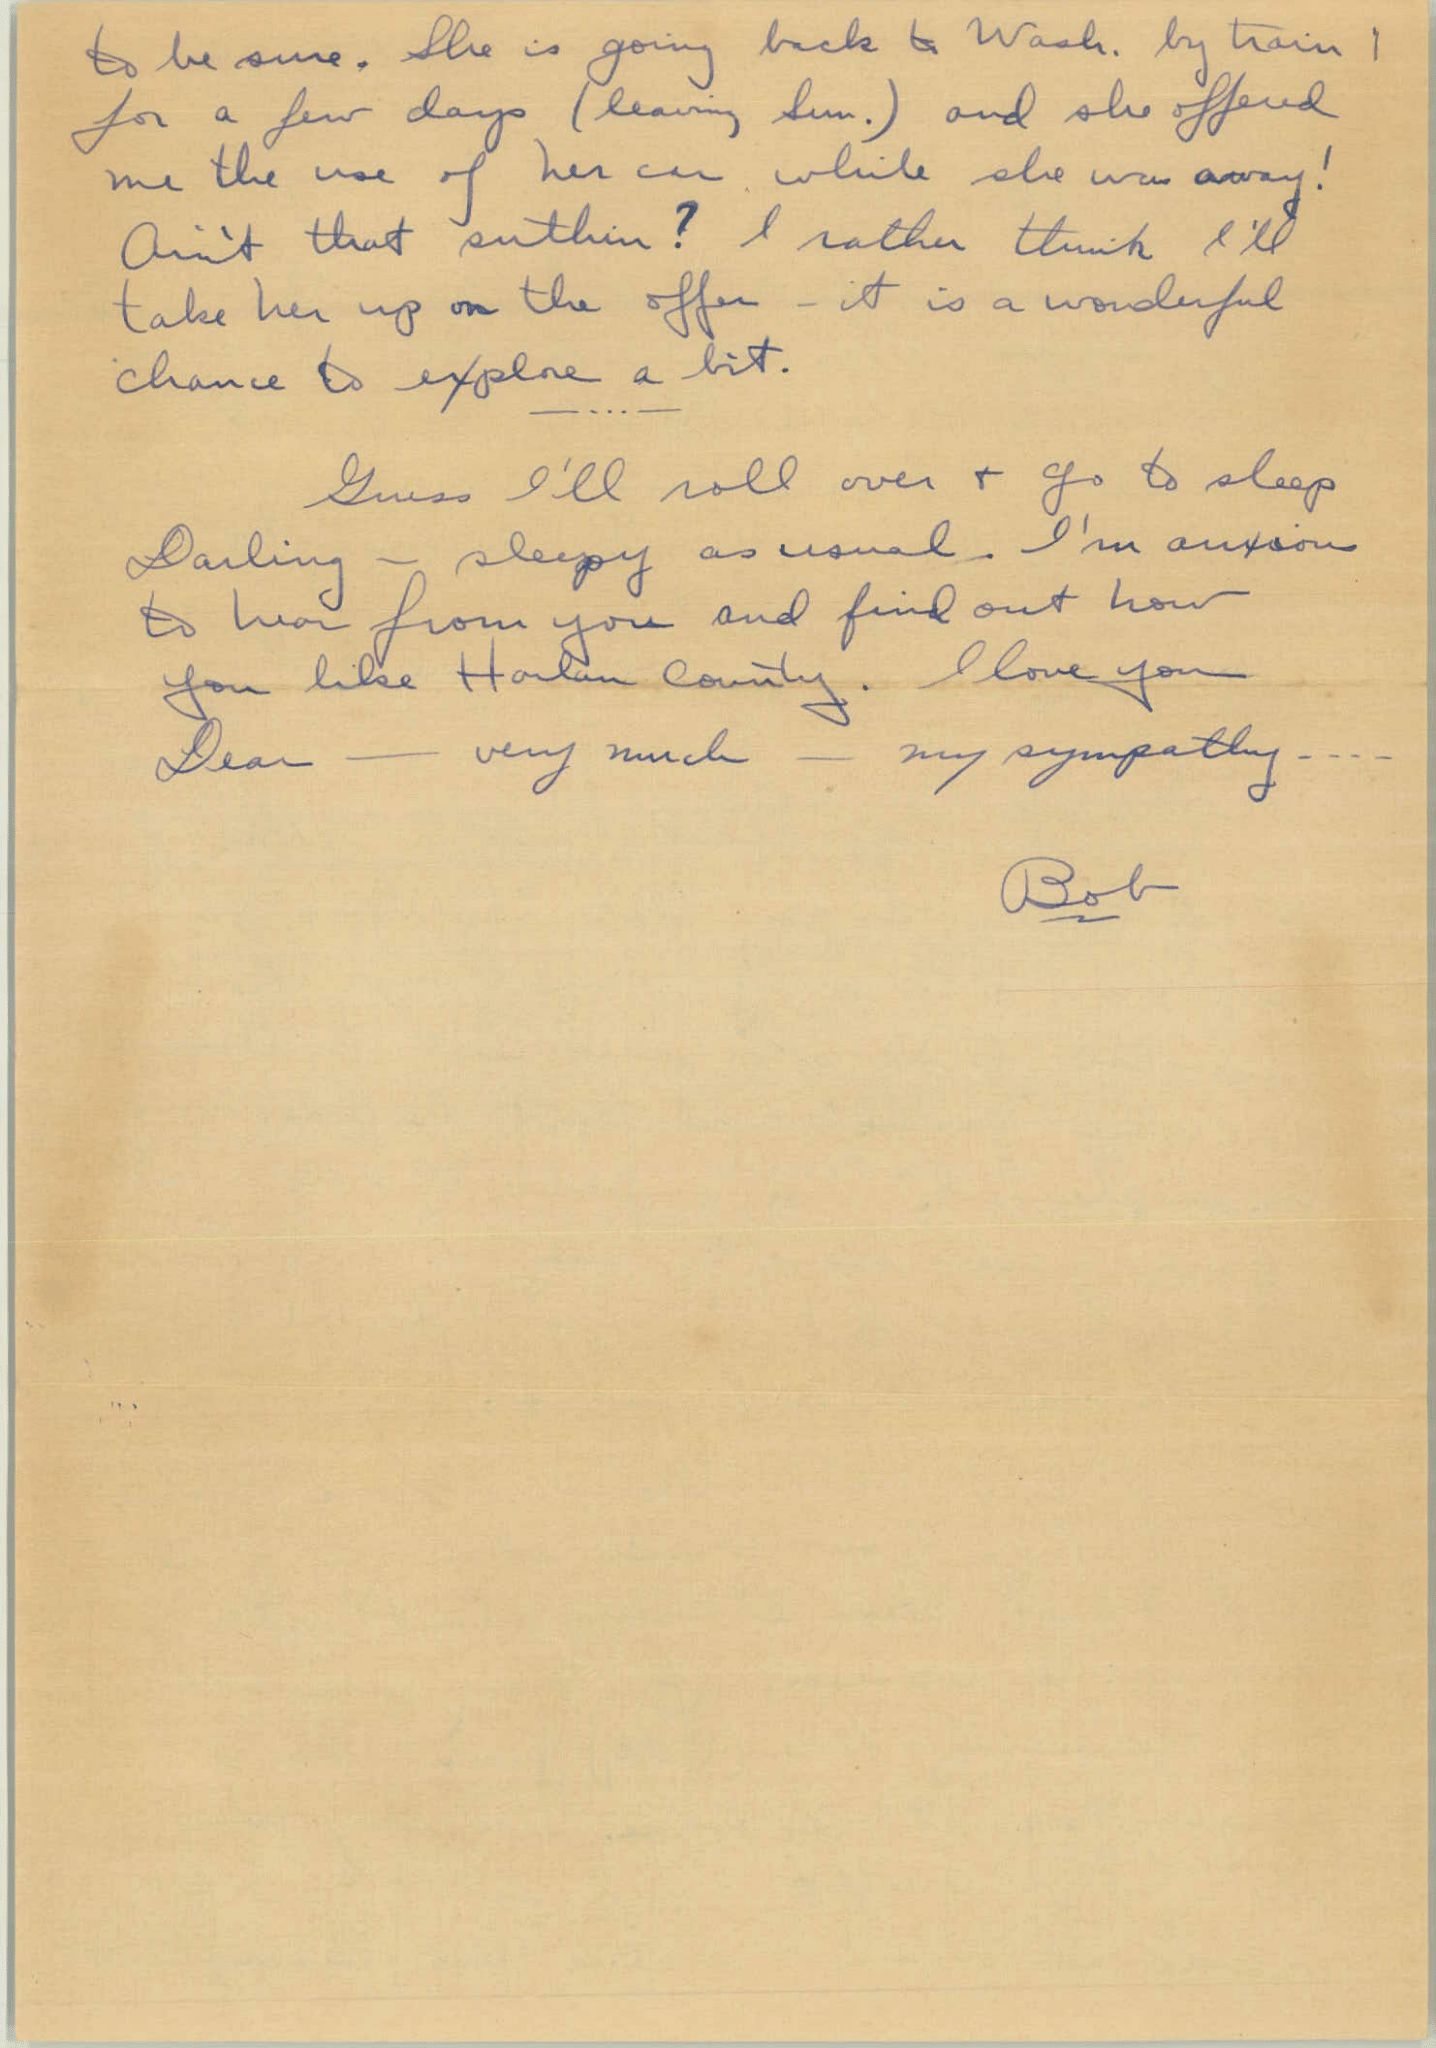 to be sure. She is going back to Wash. by train
for a few days (leaving Sun.) and she offered
me the use of her car while she was away!
Ain't that suthin? I rather think I'll
take her up on the offer - it is a wonderful
chance to explore a bit.
—...—
Guess I'll roll over + go to sleep
Darling - sleepy as usual. I'm anxious
to hear from you and find out how
you like Harlan County. I love you
Dear — very much — my sympathy ----
Bob